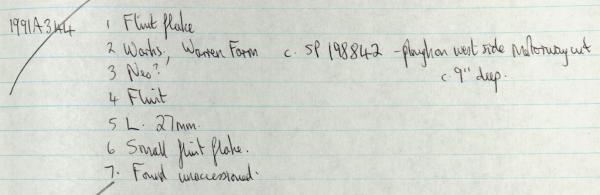 1991A344 1 Flint flake
2 Warks, Warren Farm c. SP 198842 - plough on west side Motorway cut
3 Neo? c. 9" deep.
4 Flint
5 L. 27mm.
6 Small flint flake.
7. Found unaccessioned.